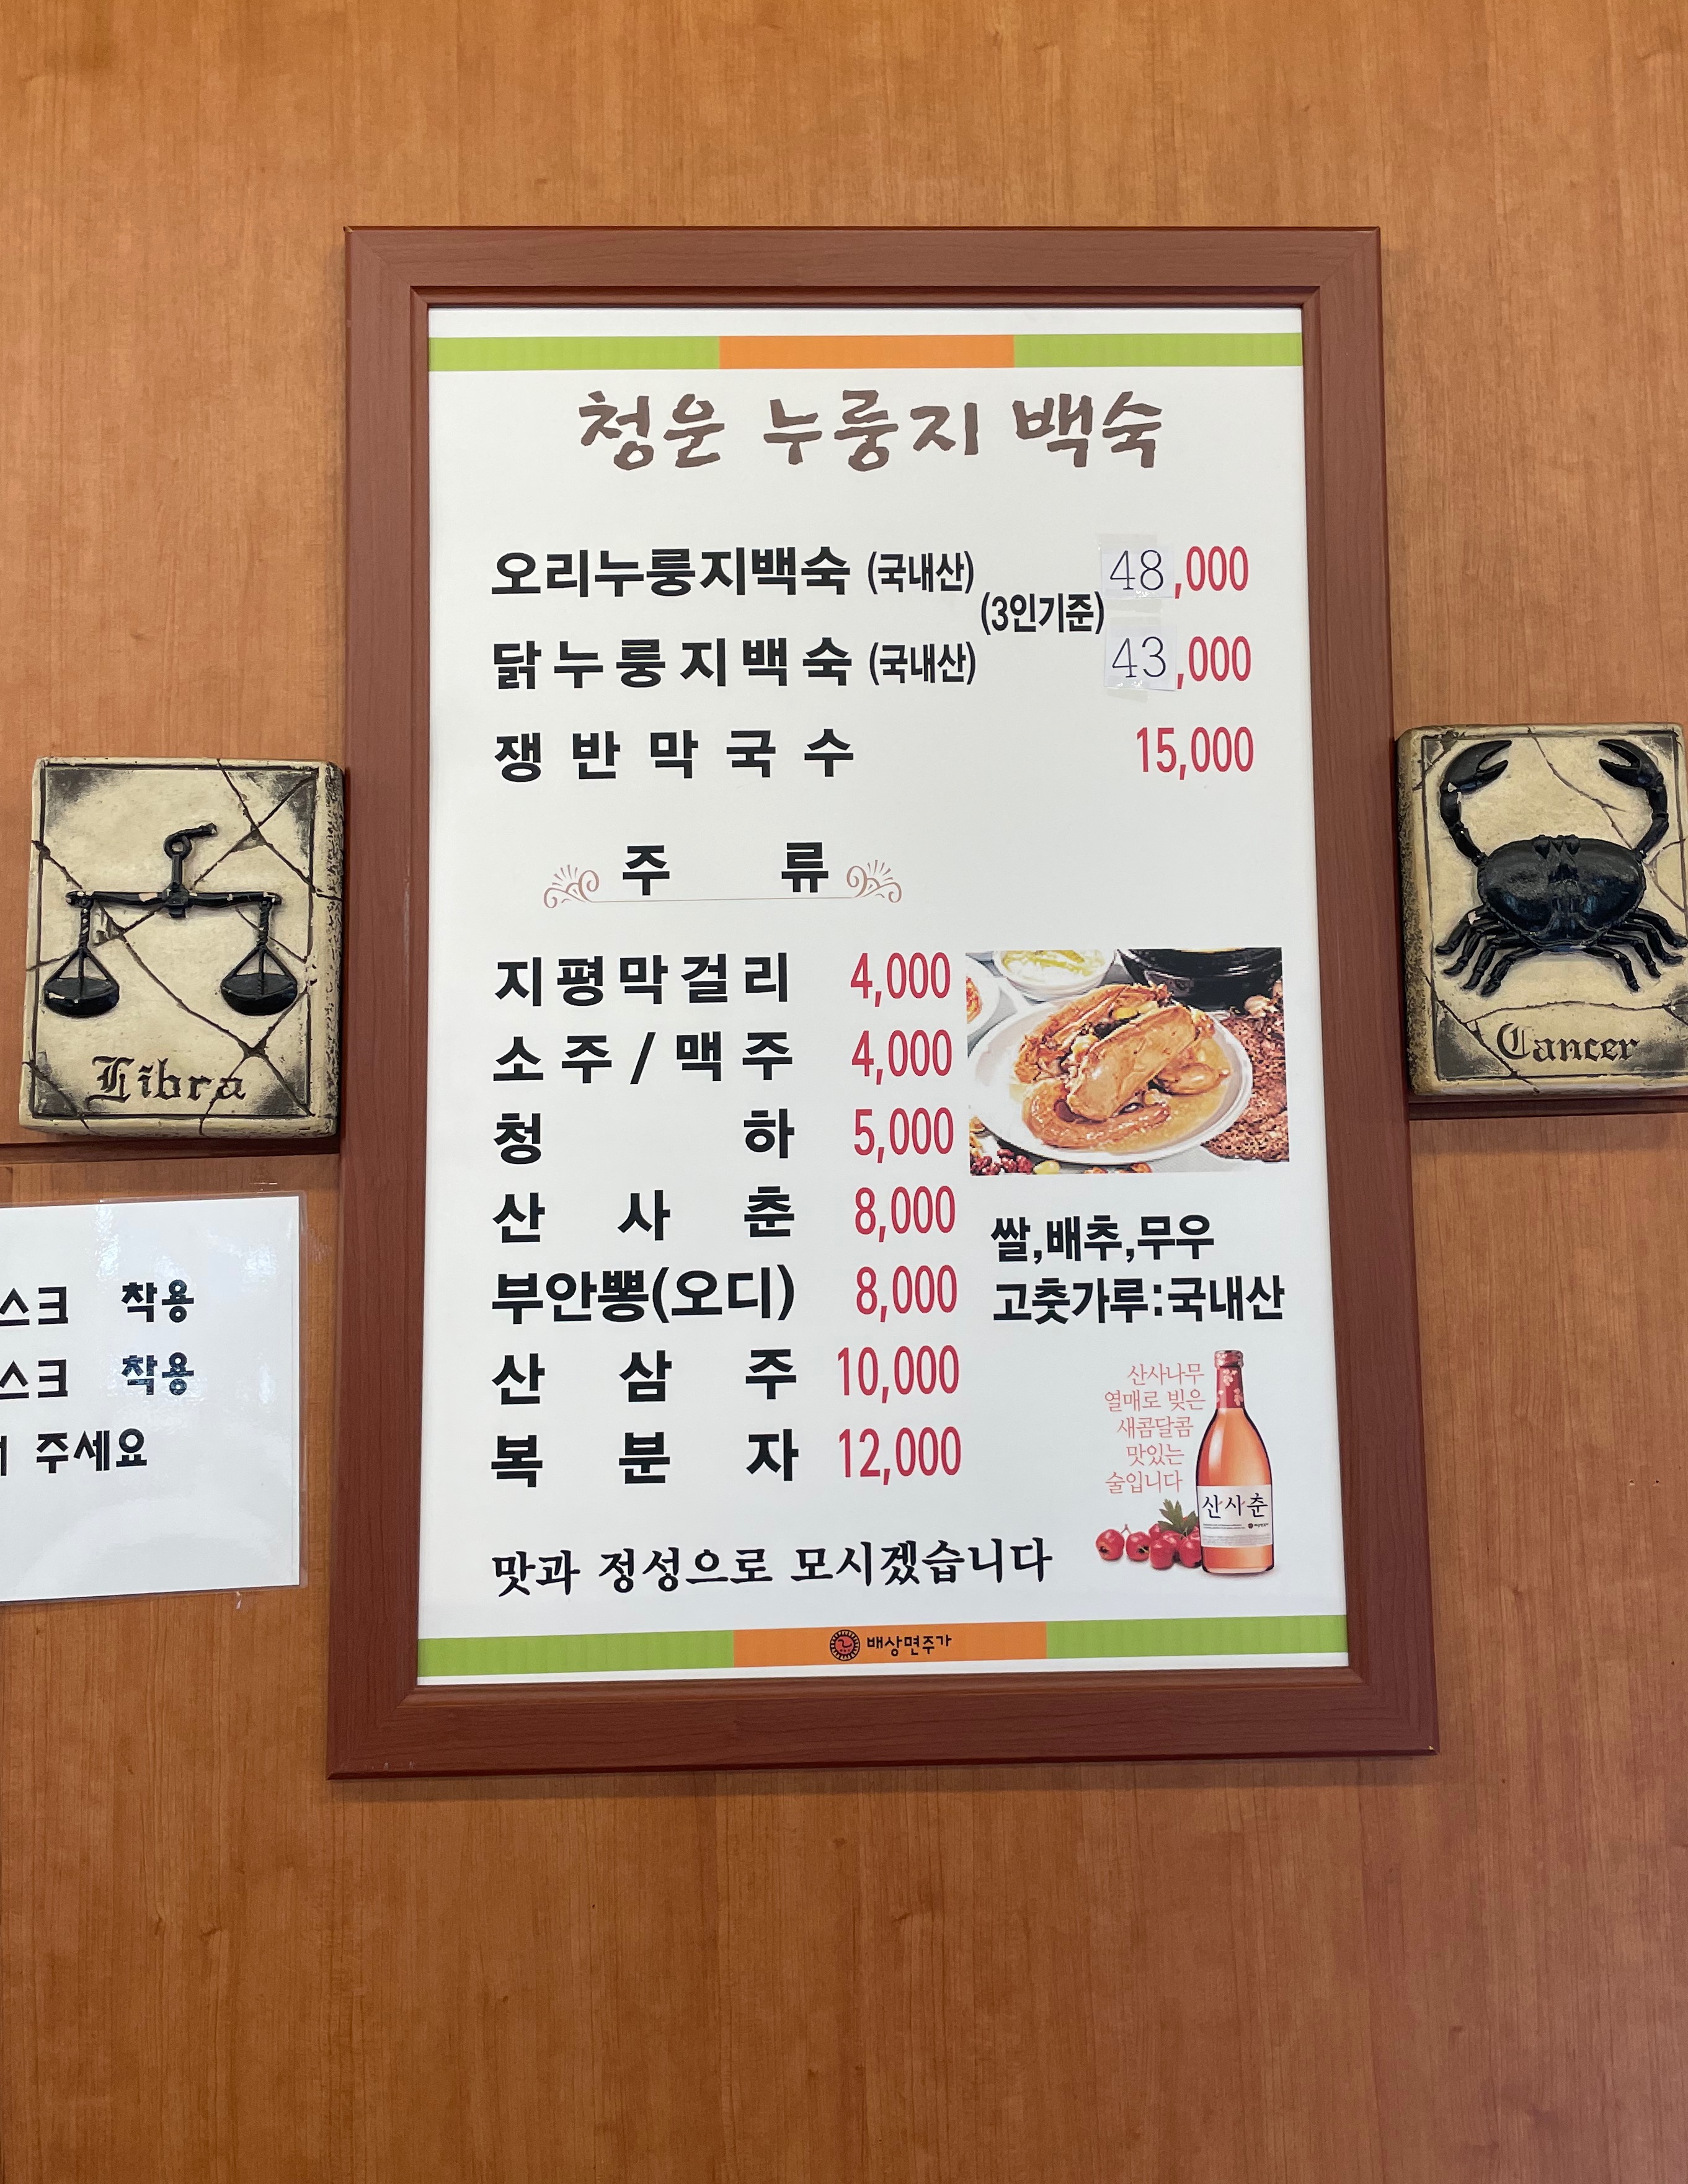 청운 누룽지 백숙
오리누룽지백숙 (국내산) 48,000
(3인기준)
닭누룽지백숙 (국내산) 43,000
쟁반막국수 15,000
주류
지평막걸리 4,000
소주/맥주 4,000
청하 5,000
산사춘 8,000
부안뽕(오디) 8,000
산삼주 10,000
복분자 12,000
쌀,배추,무우
고춧가루:국내산
산사나무
열매로 빚은
새콤달콤
맛있는
술입니다
산사춘
맛과 정성으로 모시겠습니다
배상면주가
Libra
Cancer
스크 착용
스크 착용
주세요